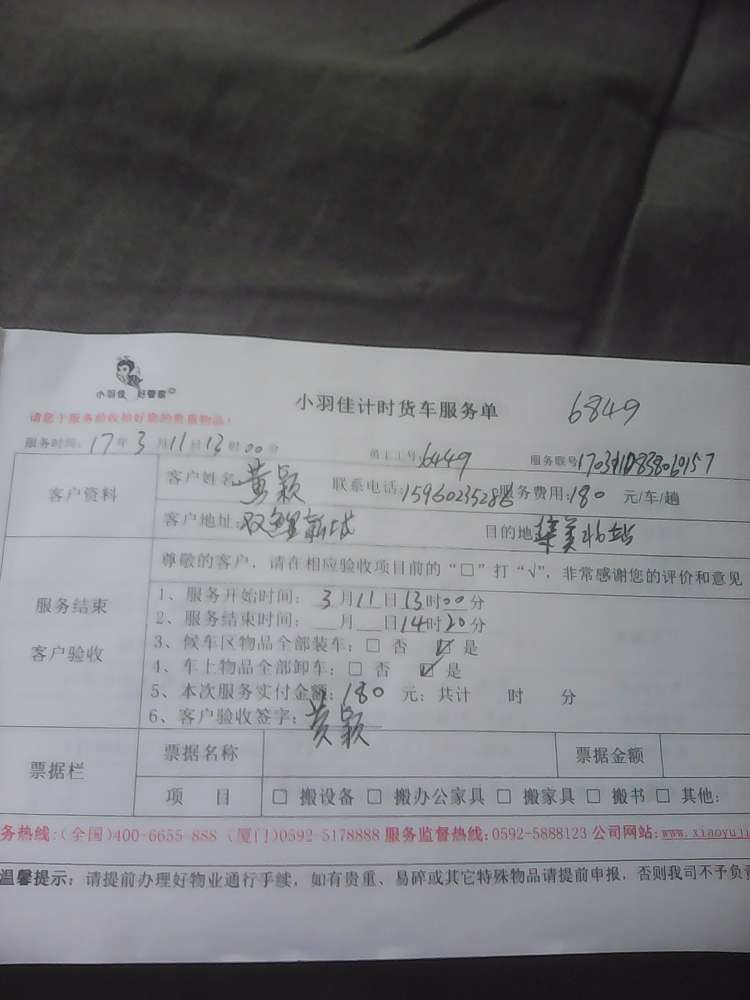 小羽佳 好管家
小羽佳计时货车服务单 6849
请您于服务前收拾好您的贵重物品！
服务时间：17年3月11日13时00分 员工工号6449 服务联号
客户资料 客户姓名黄颖 联系电话：15960235288 服务费用：180 元/车/趟
客户地址：双鲤新城 目的地集美北站
服务结束 客户验收
尊敬的客户，请在相应验收项目前的“□”打“√”，非常感谢您的评价和意见
1、服务开始时间：3月11日13时00分
2、服务结束时间：__月__日14时20分
3、候车区物品全部装车：□ 否 ☑ 是
4、车上物品全部卸车：□ 否 ☑ 是
5、本次服务实付金额：180 元；共计 时 分
6、客户验收签字：黄颖
票据栏 票据名称 票据金额
项 目 □ 搬设备 □ 搬办公家具 □ 搬家具 □ 搬书 □ 其他：
务热线：(全国)400-6655-888 (厦门)0592-5178888 服务监督热线：0592-5888123 公司网站：www.xiaoyuji
温馨提示：请提前办理好物业通行手续，如有贵重、易碎或其它特殊物品请提前申报，否则我司不予负责